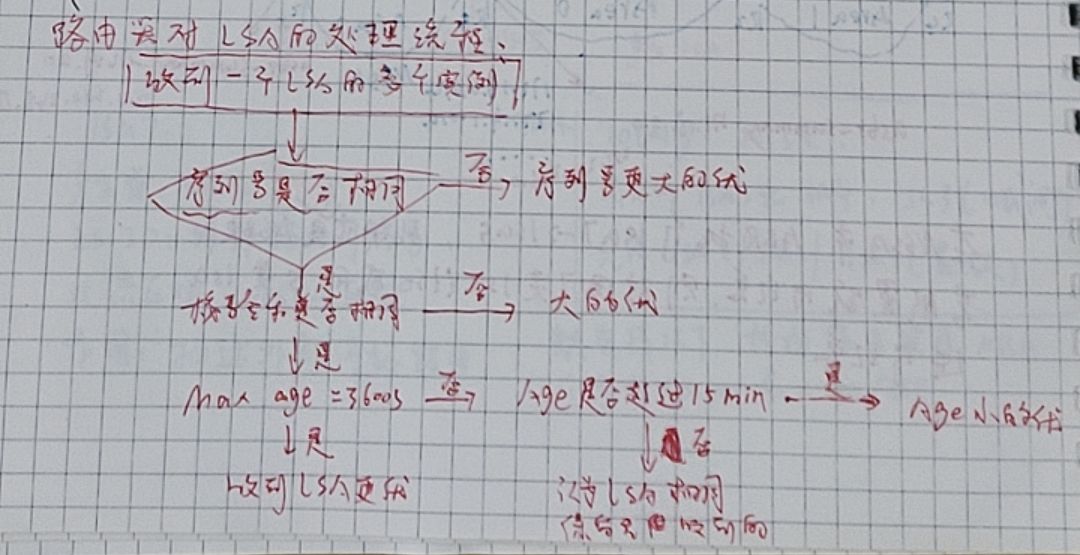 路由器对LSA的处理流程、
收到一个LSA的多个实例
序列号是否相同 否 序列号更大的优
是
校验和是否相同 否 大的优
是
Max age =3600s 否 Age是否超过15min 是 Age小的优
是 否
收到LSA更优 认为LSA相同
保留 收到的